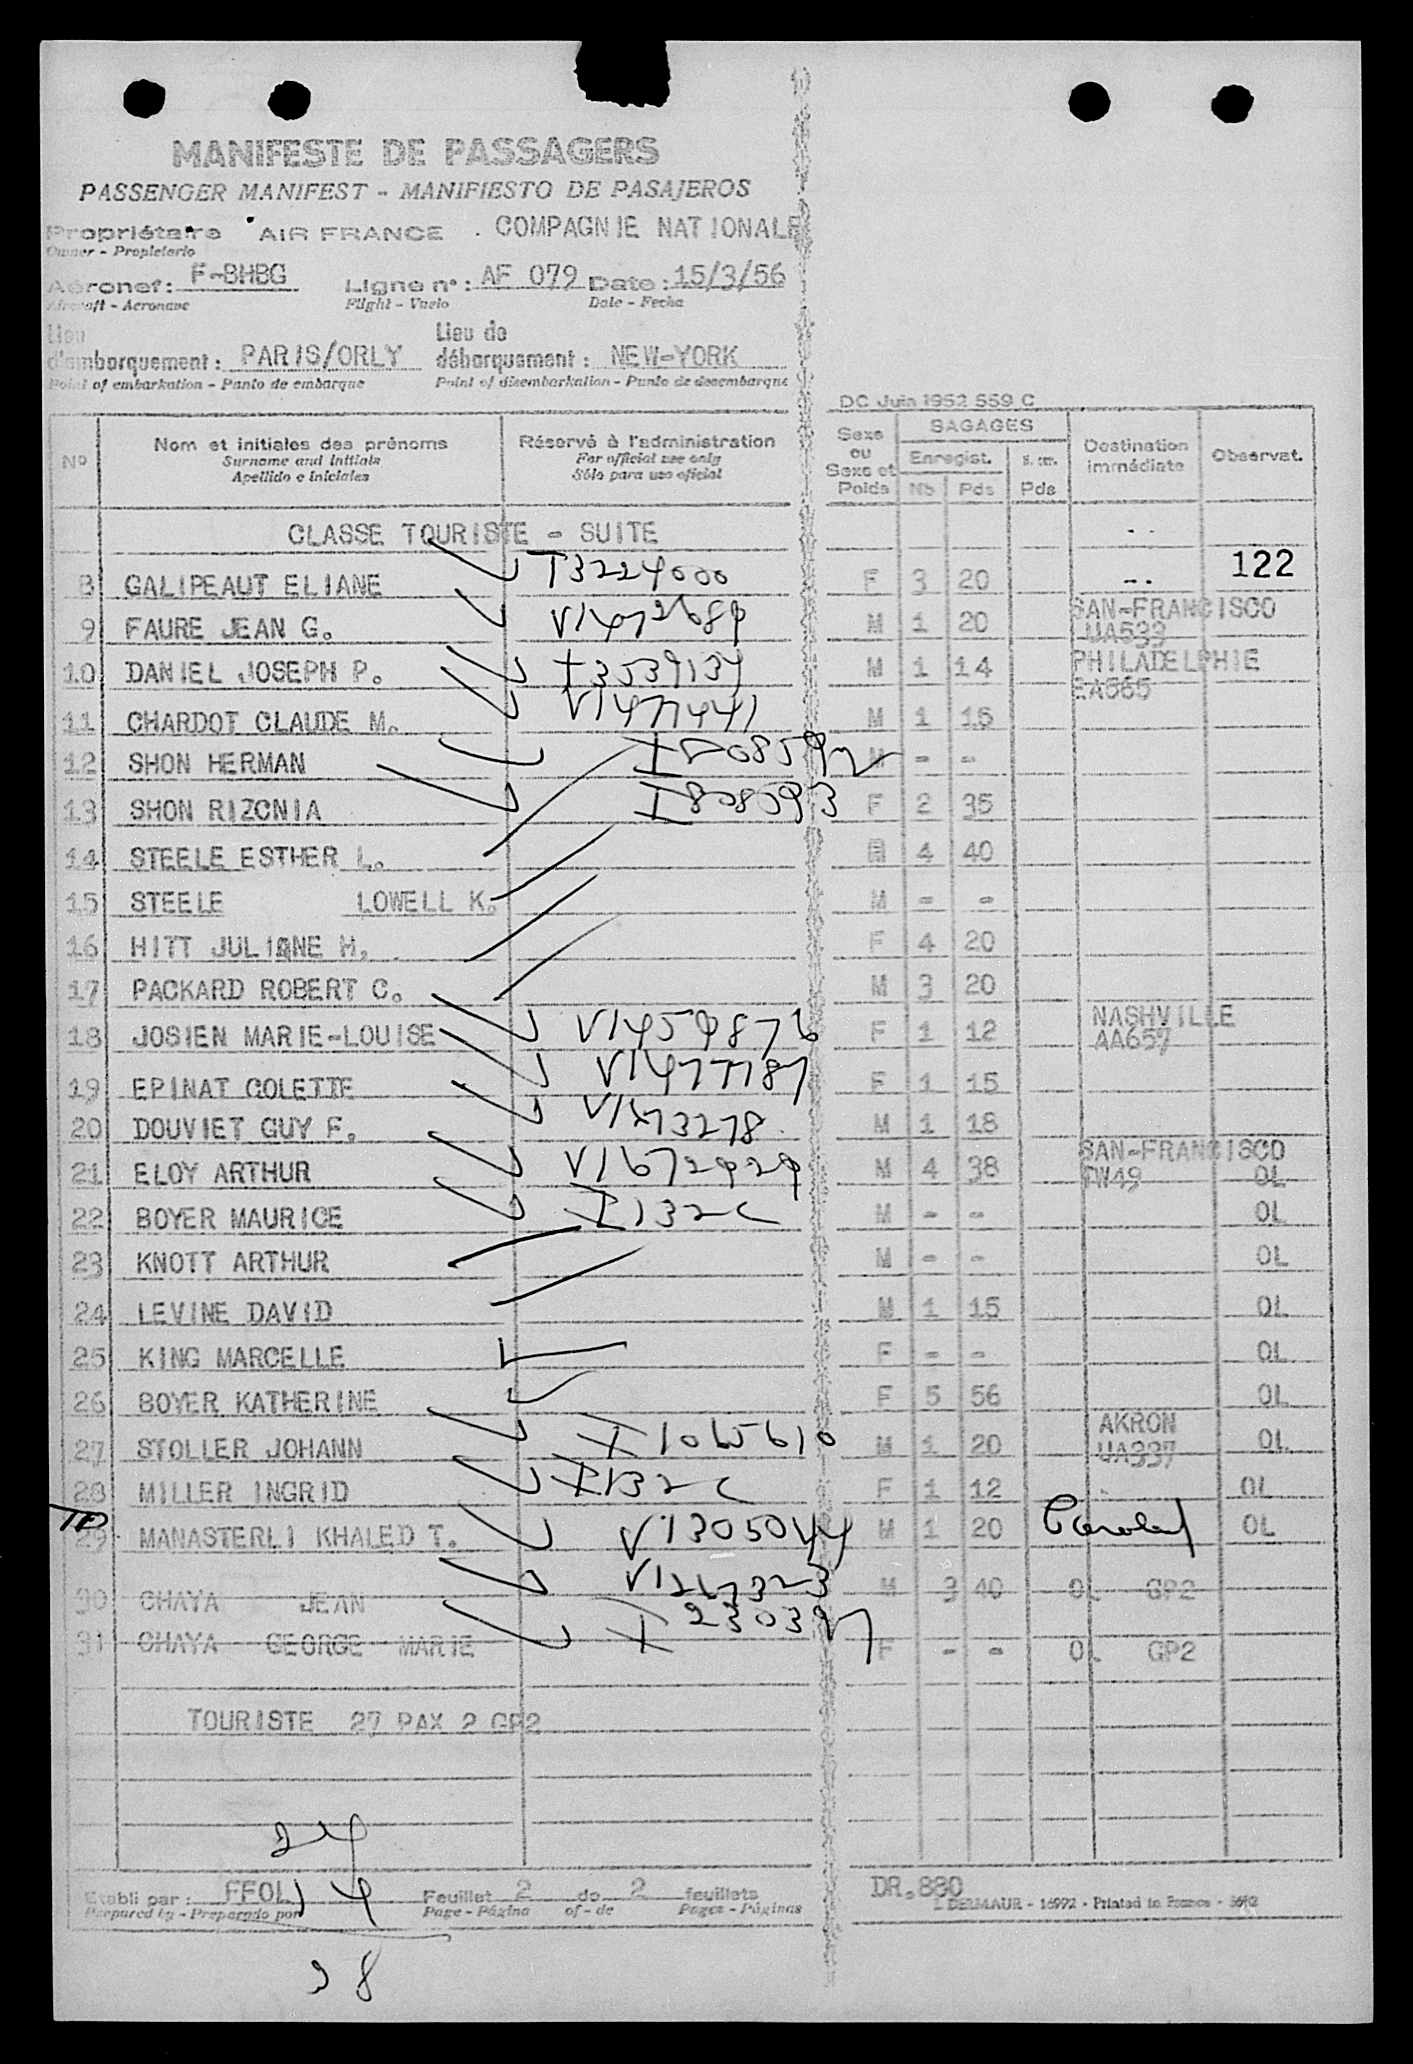 MANIFESTE DE PASSAGERS
PASSENGER MANIFEST - MANIFIESTO DE PASAJEROS
Propriétaire AIR FRANCE . COMPAGNIE NATIONALE
Owner - Propietario
Aéronef : F-BHBG Ligne n° : AF 079 Date : 15/3/56
Aircraft - Aeronave Flight - Vuelo Date - Fecha
Lieu d'embarquement : PARIS/ORLY Lieu de débarquement : NEW-YORK
Point of embarkation - Punto de embarque Point of disembarkation - Punto de desembarque
DC Juin 1952 559 C
N° Nom et initiales des prénoms Réservé à l'administration Sexe ou Sexe et Poids BAGAGES Destination immédiate Observat.
Surname and initials For official use only Enregist. Pds
Apellido e iniciales Sólo para uso oficial Nb Pds
CLASSE TOURISTE - SUITE
122
8 GALIPEAUT ELIANE T3224000 F 3 20 --
9 FAURE JEAN G. V1472689 M 1 20 SAN-FRANCISCO UA533
10 DANIEL JOSEPH P. I3539134 M 1 14 PHILADELPHIE EA565
11 CHARDOT CLAUDE M. V1477441 M 1 15
12 SHON HERMAN I808592 M - -
13 SHON RIZCNIA I808593 F 2 35
14 STEELE ESTHER L. 4 40
15 STEELE LOWELL K. M - -
16 HITT JULIANE H. F 4 20
17 PACKARD ROBERT C. M 3 20
18 JOSIEN MARIE-LOUISE V1459876 F 1 12 NASHVILLE AA657
19 EPINAT COLETTE V1477187 F 1 15
20 DOUVIET GUY F. V1473278 M 1 18
21 ELOY ARTHUR V1672929 M 4 38 SAN-FRANCISCO TW49 OL
22 BOYER MAURICE I132C M - - OL
23 KNOTT ARTHUR M - - OL
24 LEVINE DAVID M 1 15 OL
25 KING MARCELLE F - - OL
26 BOYER KATHERINE F 5 56 OL
27 STOLLER JOHANN I1065610 M 1 20 AKRON UA337 OL
28 MILLER INGRID I132C F 1 12 OL
29 MANASTERLI KHALED T. V1305044 M 1 20 OL
30 CHAYA JEAN V1267323 M 3 40 OL GP2
31 CHAYA GEORGE MARIE I230397 F - - OL GP2
TOURISTE 27 PAX 2 GP2
24
14
38
Etabli par : FFOL Feuillet 2 de 2 feuillets DR.880
Prepared by - Preparado por Page - Página of - de Pages - Páginas DERMAUR - 16992 - Printed in France